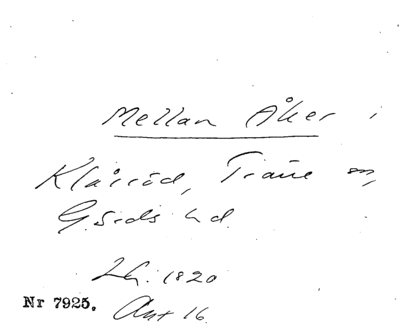 Mellan Åker i
Klåröd, Träne sn,
Gärds hd.
Lh. 1820
Nr 7925. Akt 16.